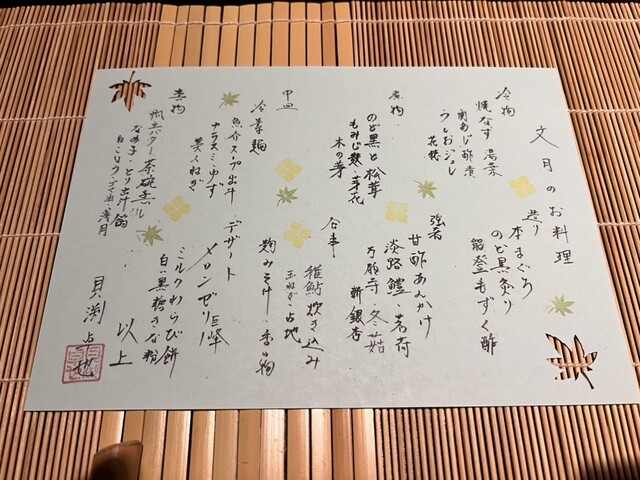 文月のお料理
冷物
焼なす 湯葉
南あじ酢漬
うしおジュレ
花穂
造り
本まぐろ
のど黒炙り
能登もずく酢
煮物
のど黒と松茸
もみじ麩 芽花
木の芽
強肴
甘酢あんかけ
淡路鱧 茗荷
万願寺 冬茹
新銀杏
中皿
冷菜麺
魚介スープ出汁
カラスミゆず
芽ねぎ
食事
稚鮎炊き込み
玉ねぎ 占地
麹みそ汁 香の物
蒸物
帆立バター茶碗蒸し
なめ子 とり出汁餡
デザート
メロンゼリー 巨峰
ミルクわらび餅
白い黒蜜きな粉
以上